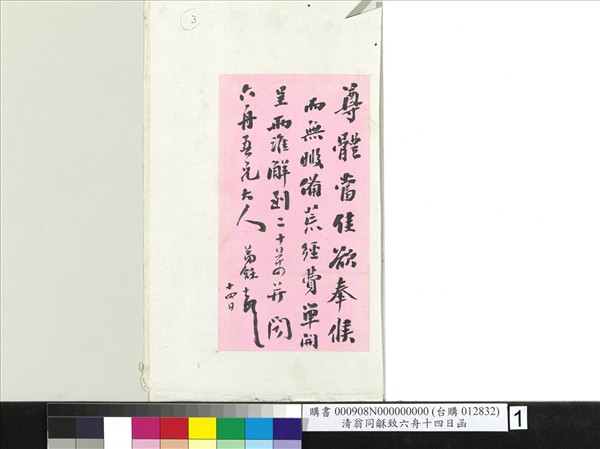 3
尊體當佳欲奉候
而無暇備荒經費單開
呈兩淮解到二十萬并閱
六舟吾兄大人
弟龢
十四日
購書 000908N000000000 (台購 012832)
清翁同龢致六舟十四日函
1